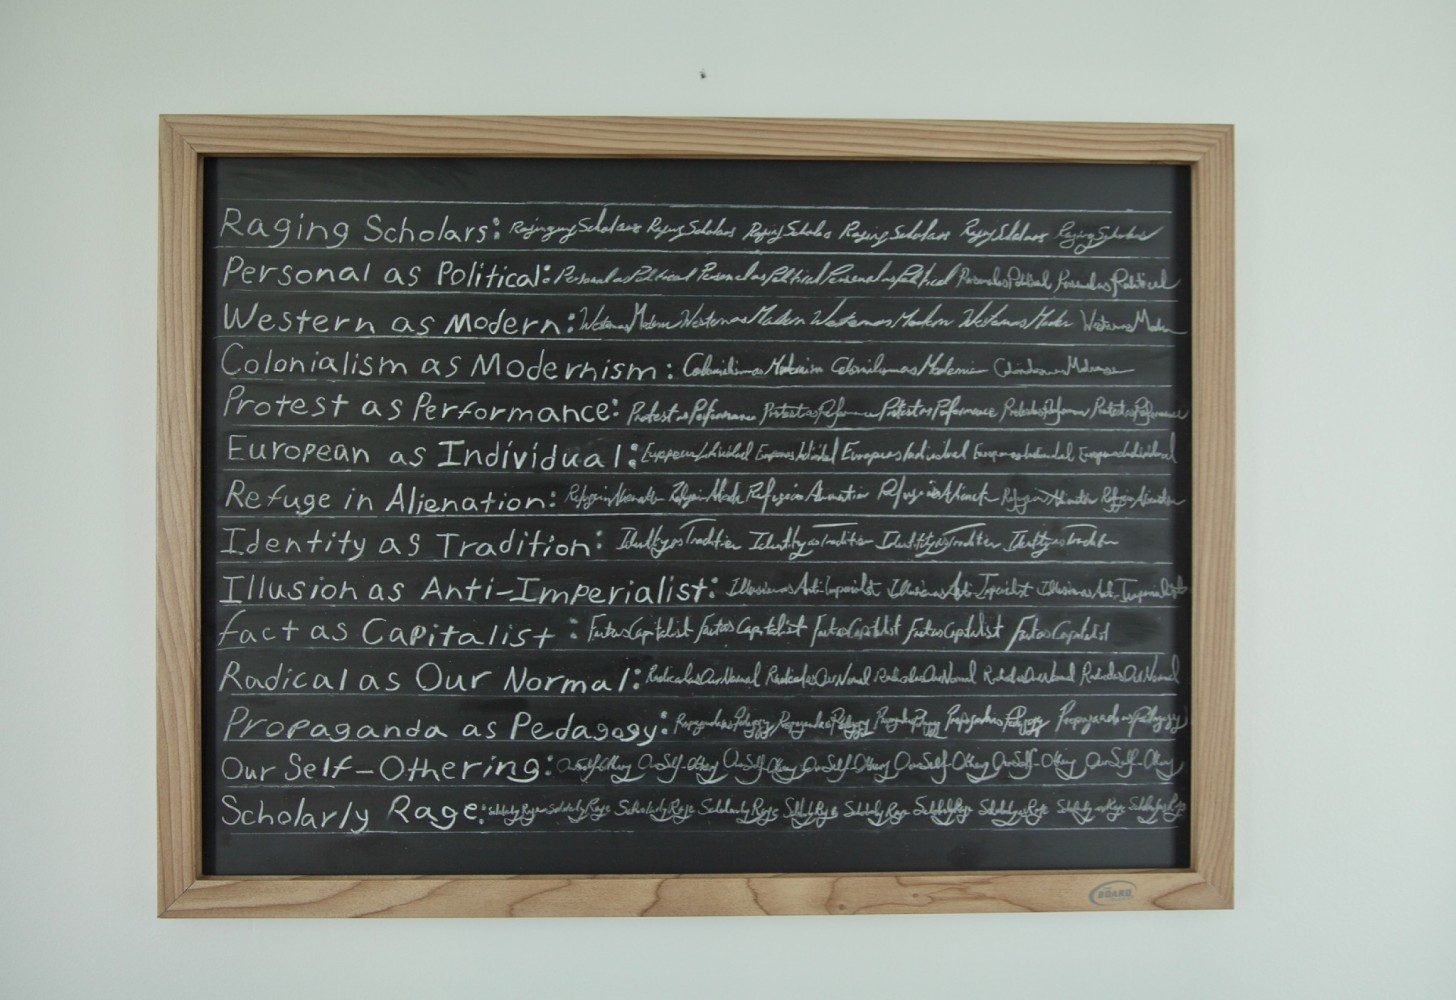 Raging Scholars: Raging Scholars Raging Scholars Raging Scholars Raging Scholars Raging Scholars Raging Scholars
Personal as Political: Personal as Political Personal as Political Personal as Political Personal as Political Personal as Political
Western as Modern: Western as Modern Western as Modern Western as Modern Western as Modern Western as Modern
Colonialism as Modernism: Colonialism as Modernism Colonialism as Modernism Colonialism as Modernism
Protest as Performance: Protest as Performance Protest as Performance Protest as Performance Protest as Performance Protest as Performance
European as Individual: European as Individual European as Individual European as Individual European as Individual European as Individual
Refuge in Alienation: Refuge in Alienation Refuge in Alienation Refuge in Alienation Refuge in Alienation Refuge in Alienation Refuge in Alienation
Identity as Tradition: Identity as Tradition Identity as Tradition Identity as Tradition Identity as Tradition
Illusion as Anti-Imperialist: Illusion as Anti-Imperialist Illusion as Anti-Imperialist Illusion as Anti-Imperialist
fact as Capitalist: Fact as Capitalist Fact as Capitalist Fact as Capitalist Fact as Capitalist Fact as Capitalist
Radical as Our Normal: Radical as Our Normal Radical as Our Normal Radical as Our Normal Radical as Our Normal Radical as Our Normal
Propaganda as Pedagogy: Propaganda as Pedagogy Propaganda as Pedagogy Propaganda as Pedagogy Propaganda as Pedagogy Propaganda as Pedagogy
Our Self-Othering: Our Self-Othering Our Self-Othering Our Self-Othering Our Self-Othering Our Self-Othering Our Self-Othering Our Self-Othering
Scholarly Rage: Scholarly Rage Scholarly Rage Scholarly Rage Scholarly Rage Scholarly Rage Scholarly Rage Scholarly Rage Scholarly Rage Scholarly Rage Scholarly Rage
BOARD